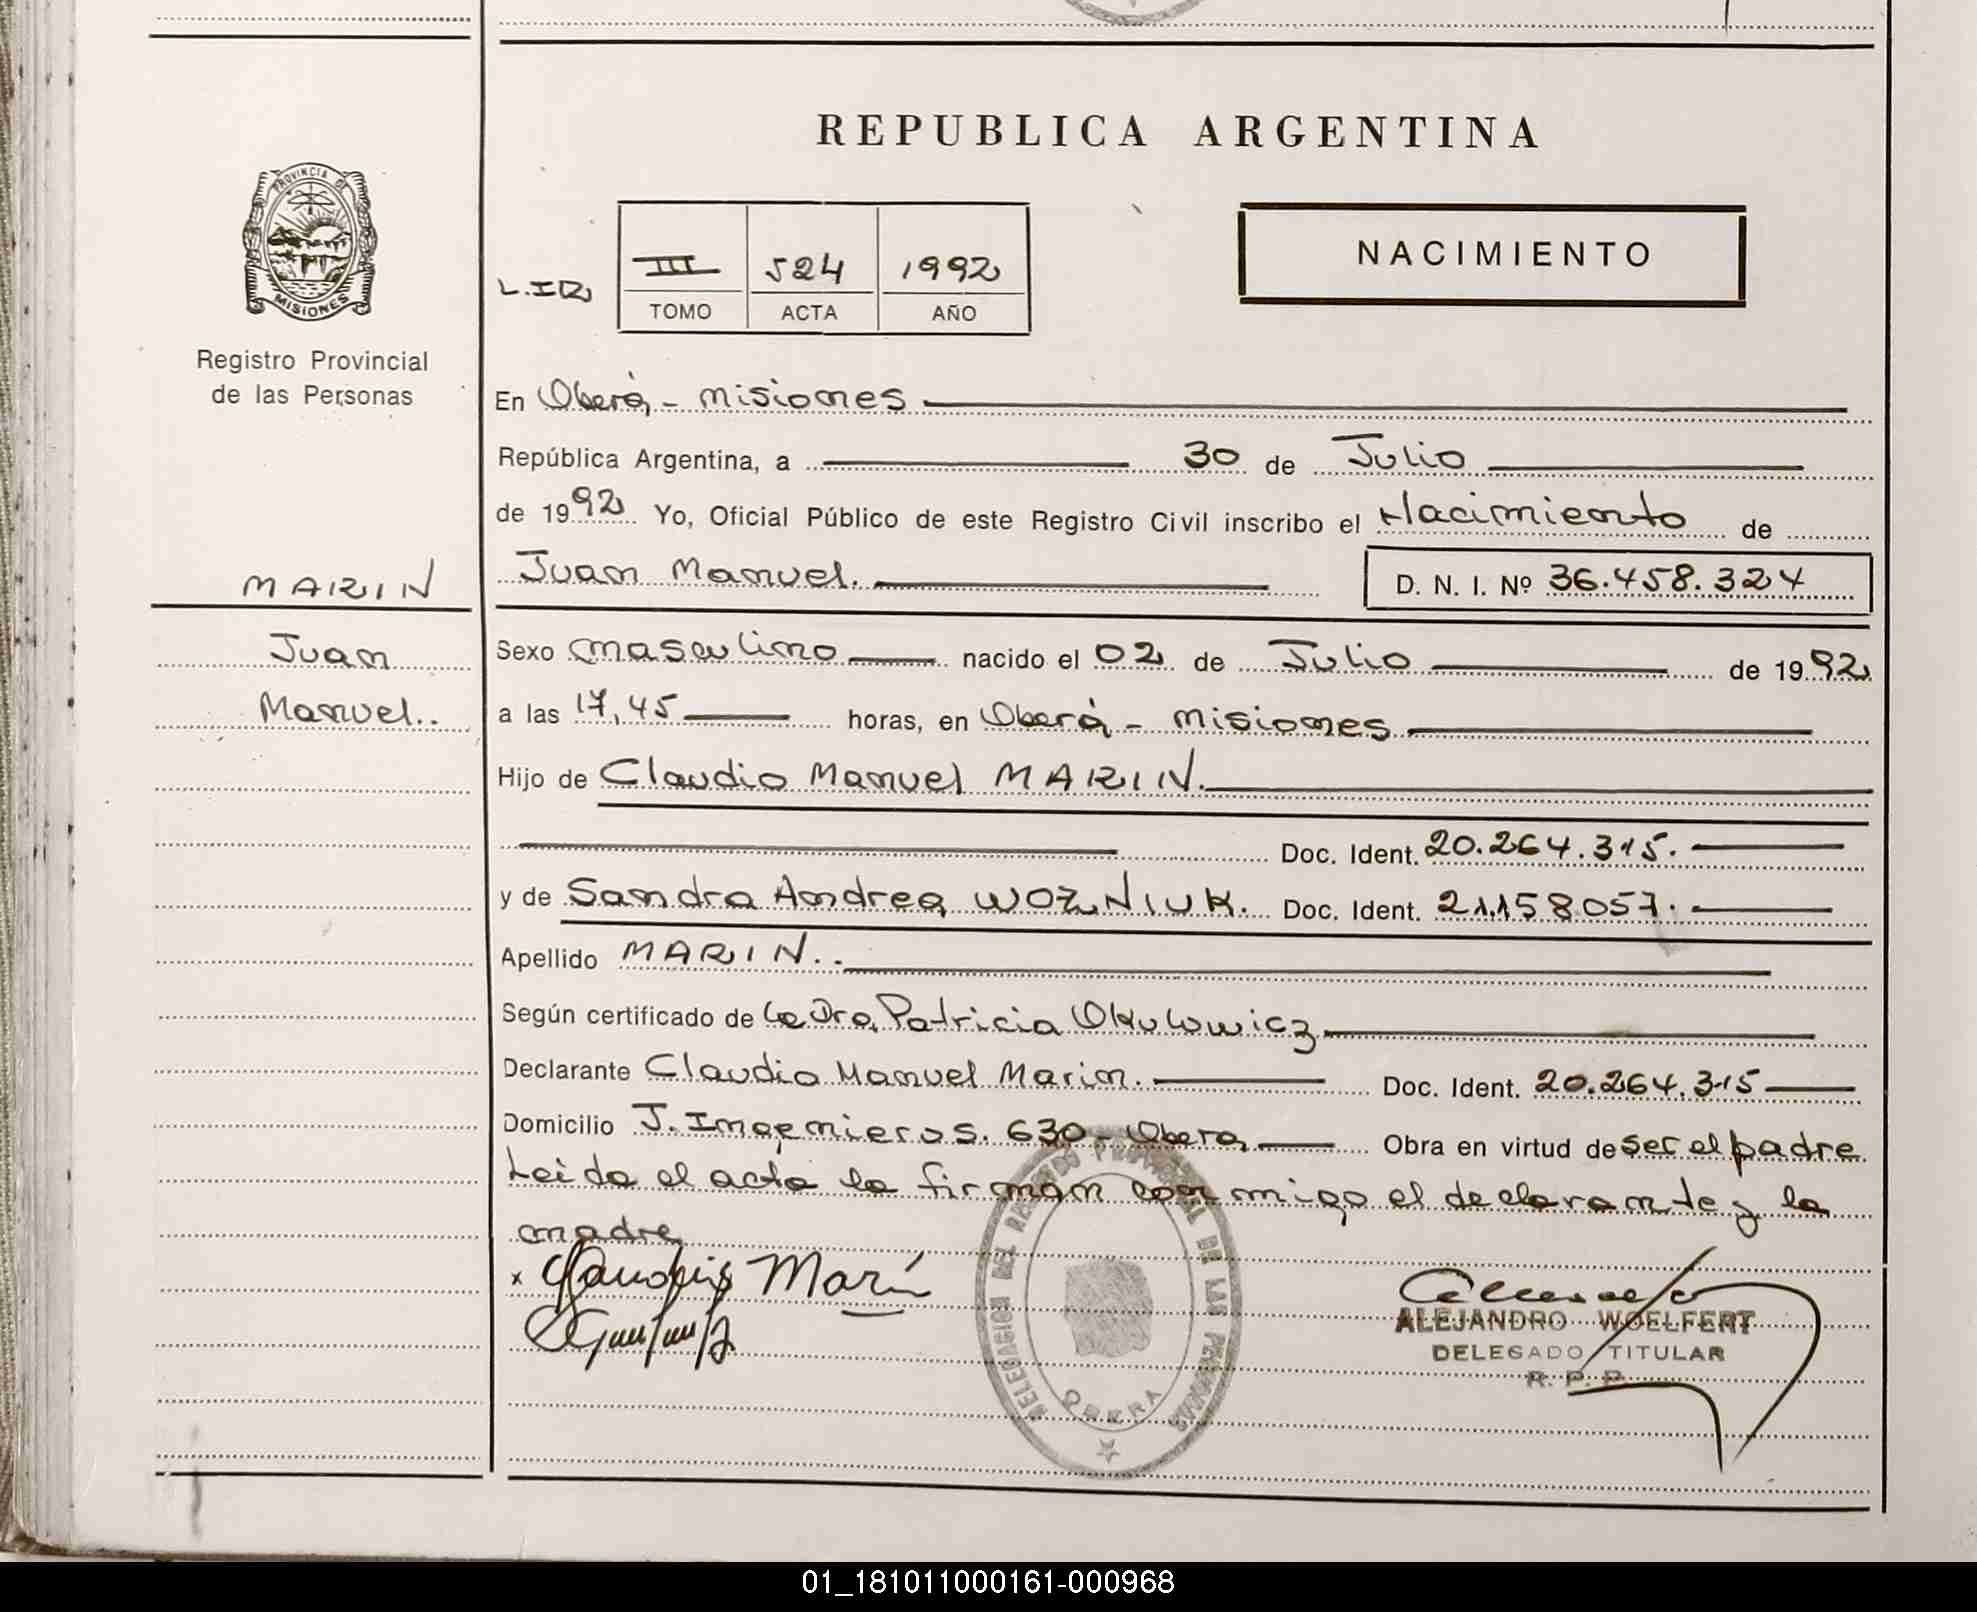 REPUBLICA ARGENTINA
PROVINCIA DE
MISIONES
Registro Provincial
de las Personas
NACIMIENTO
III 524 1992
TOMO ACTA AÑO
En Oberá - Misiones
República Argentina, a 30 de Julio
de 1992 Yo, Oficial Público de este Registro Civil inscribo el Nacimiento de
MARIN
Juan Manuel. D. N. I. Nº 36.458.324
Juan
Manuel..
Sexo masculino nacido el 02 de Julio de 1992
a las 17,45 horas, en Oberá - Misiones
Hijo de Claudio Manuel MARIN.
Doc. Ident. 20.264.315.
y de Sandra Andrea WOZNIUK. Doc. Ident. 21.158.057.
Apellido MARIN..
Según certificado de la Dra. Patricia Okulowicz
Declarante Claudio Manuel Marin. Doc. Ident. 20.264.315
Domicilio J. Ingenieros. 630 - Oberá Obra en virtud de ser el padre
Leida el acta la firman conmigo el declarante y la
madre
x Claudio Marín
DELEGACION DEL REGISTRO PROVINCIAL DE LAS PERSONAS
OBERA
ALEJANDRO WOELFERT
DELEGADO TITULAR
R. P. P.
01_181011000161-000968